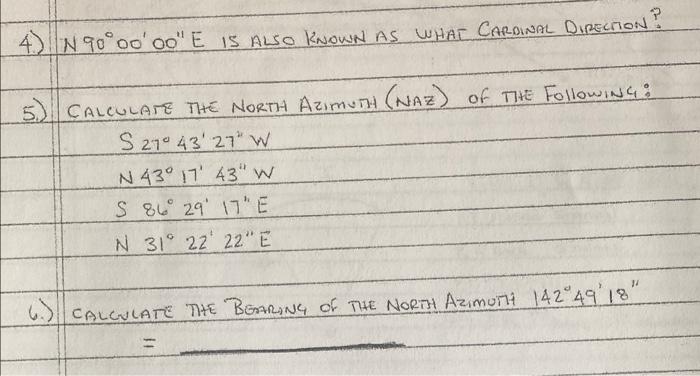 4.) N 90° 00' 00" E IS ALSO KNOWN AS WHAT CARDINAL DIRECTION?
5.) CALCULATE THE NORTH AZIMUTH (NAZ) OF THE FOLLOWING:
S 27° 43' 27" W
N 43° 17' 43" W
S 86° 29' 17" E
N 31° 22' 22" E
6.) CALCULATE THE BEARING OF THE NORTH AZIMUTH 142° 49' 18"
=